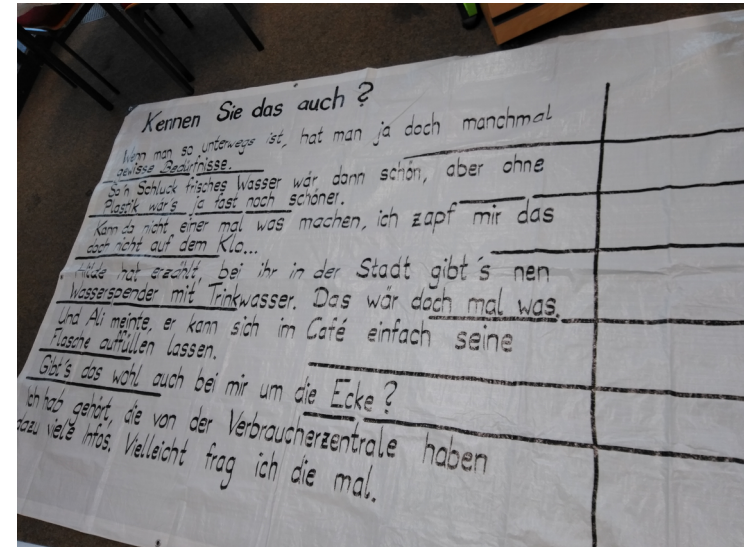 Kennen Sie das auch?
Wenn man so unterwegs ist, hat man ja doch manchmal
gewisse Bedürfnisse.
So'n Schluck frisches Wasser wär dann schön, aber ohne
Plastik wär's ja fast noch schöner.
Kann da nicht einer mal was machen, ich zapf mir das
doch nicht auf dem Klo...
Hilde hat erzählt, bei ihr in der Stadt gibt's nen
Wasserspender mit Trinkwasser. Das wär doch mal was.
Und Ali meinte, er kann sich im Café einfach seine
Flasche auffüllen lassen.
Gibt's das wohl auch bei mir um die Ecke?
Ich hab gehört, die von der Verbraucherzentrale haben
dazu viele Infos. Vielleicht frag ich die mal.